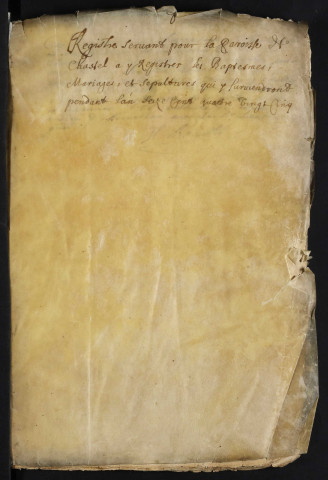 Registre servant pour la Parroisse de
Chastel a y Registrer les Baptesmes,
Mariages, et sepultures qui y surviendront
pendant l'an seize Cent quatre vingt Cinq